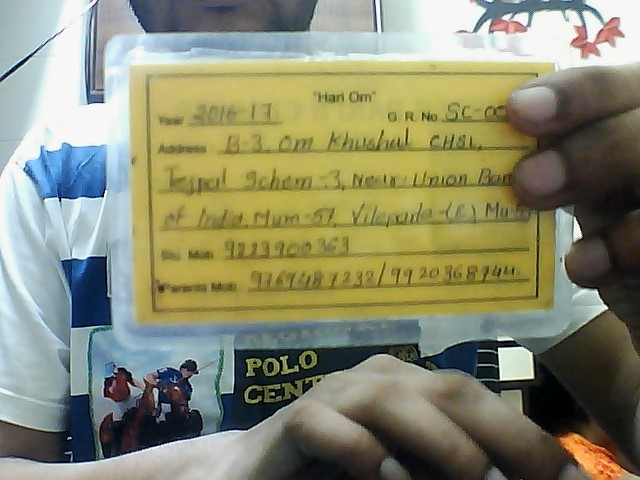 "Hari Om"
Year 2016-17 G. R. No SC-00
Address B-3, Om Khushal CHSL,
Tejpal Schem-3, Near Union Ban
of India, Mum-57, Vileparle-(E) Mu
Stu. Mob 9223900363
Parents Mob: 9769487232/9920368744
POLO
CENT